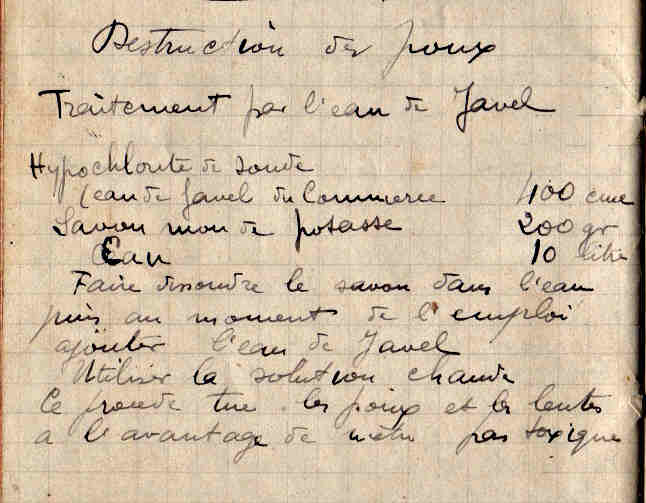 Destruction des poux
Traitement par l'eau de Javel
Hypochlorite de soude
(eau de Javel du Commerce 400 cme
Savon mou de potasse 200 gr
Eau 10 litre
Faire dissoudre le savon dans l'eau
puis au moment de l'emploi
ajouter l'eau de Javel
Utiliser la solution chaude
Ce procede tue les poux et les lentes
a l'avantage de n'etre pas toxique